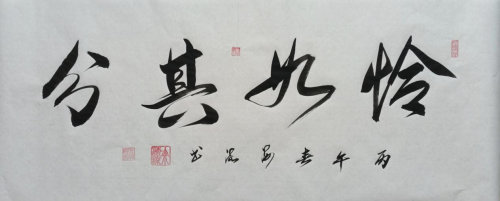 恰如其分
丙午春